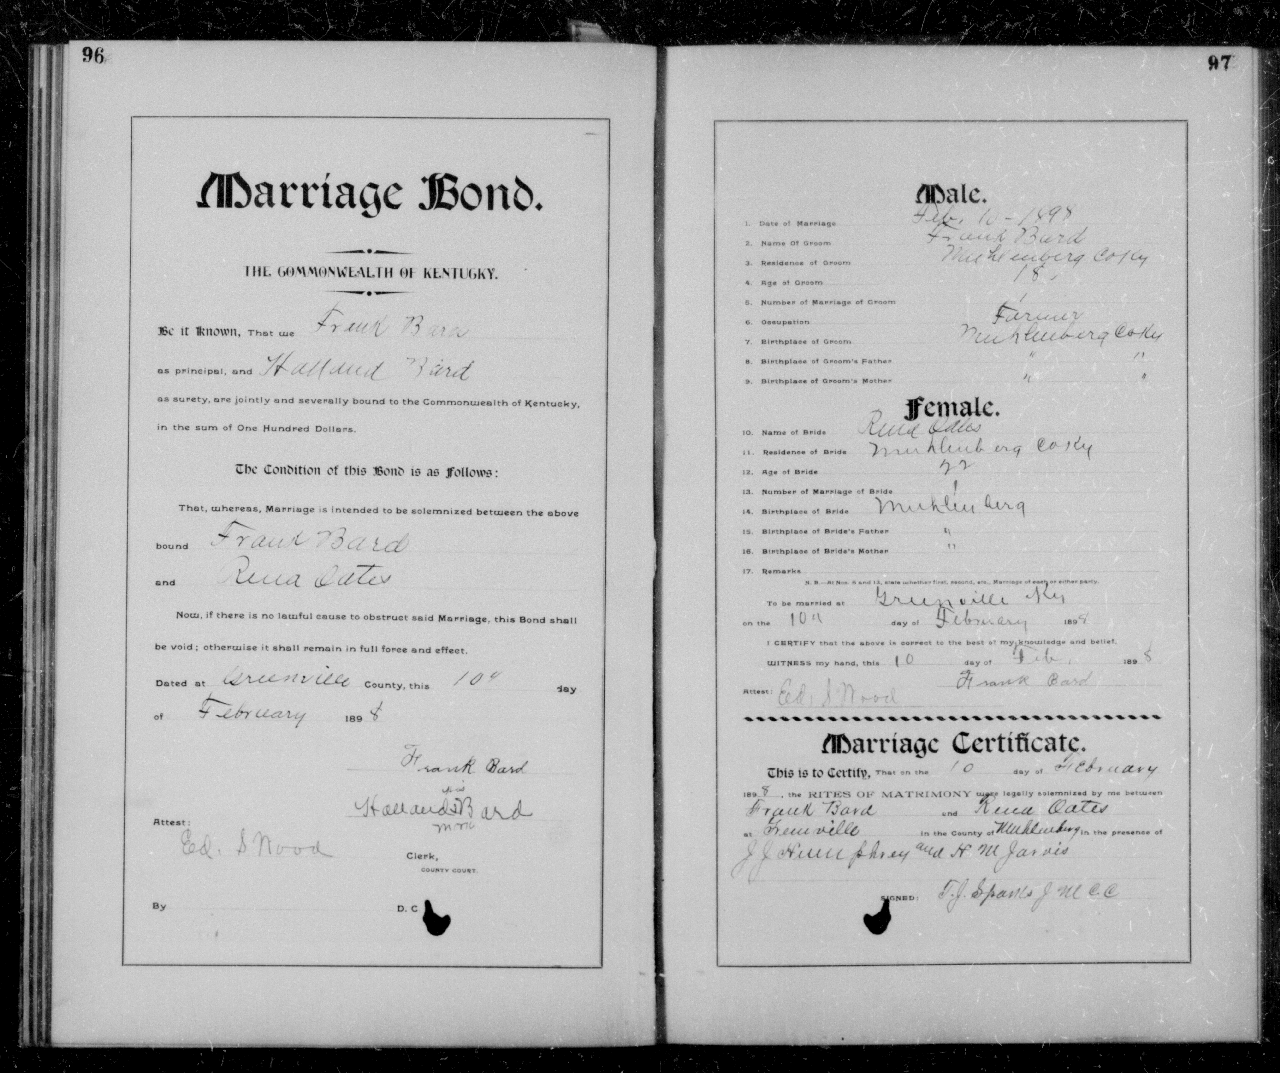 96
Marriage Bond.
THE COMMONWEALTH OF KENTUCKY.
Be it Known, That we Frank Bard
as principal, and Holland Bard
as surety, are jointly and severally bound to the Commonwealth of Kentucky,
in the sum of One Hundred Dollars.
The Condition of this Bond is as Follows:
That, whereas, Marriage is intended to be solemnized between the above
bound Frank Bard
and Rena Oates
Now, if there is no lawful cause to obstruct said Marriage, this Bond shall
be void; otherwise it shall remain in full force and effect.
Dated at Greenville County, this 10" day
of February 1898
Frank Bard
his
Holland x Bard
mrk
Attest:
Ed. S Wood
Clerk,
COUNTY COURT.
By D. C
97
Male.
1. Date of Marriage Feb. 10 - 1898
2. Name Of Groom Frank Bard
3. Residence of Groom Muhlenberg Co Ky
4. Age of Groom 18
5. Number of Marriage of Groom 1
6. Occupation Farmer
7. Birthplace of Groom Muhlenberg Co Ky
8. Birthplace of Groom's Father " "
9. Birthplace of Groom's Mother " "
Female.
10. Name of Bride Rena Oates
11. Residence of Bride Muhlenberg Co Ky
12. Age of Bride 22
13. Number of Marriage of Bride 1
14. Birthplace of Bride Muhlenberg
15. Birthplace of Bride's Father "
16. Birthplace of Bride's Mother "
17. Remarks
N. B.—At Nos. 5 and 13, state whether first, second, etc., Marriage of each or either party.
To be married at Greenville Ky
on the 10" day of February 1898
I CERTIFY that the above is correct to the best of my knowledge and belief.
WITNESS my hand, this 10 day of Feb. 1898
Frank Bard
Attest: Ed. S Wood
Marriage Certificate.
This is to Certify, That on the 10 day of February
1898, the RITES OF MATRIMONY were legally solemnized by me between
Frank Bard and Rena Oates
at Greenville in the County of Muhlenberg in the presence of
J J Humphrey and H M Jarvis
SIGNED: T. J. Sparks J M C. C